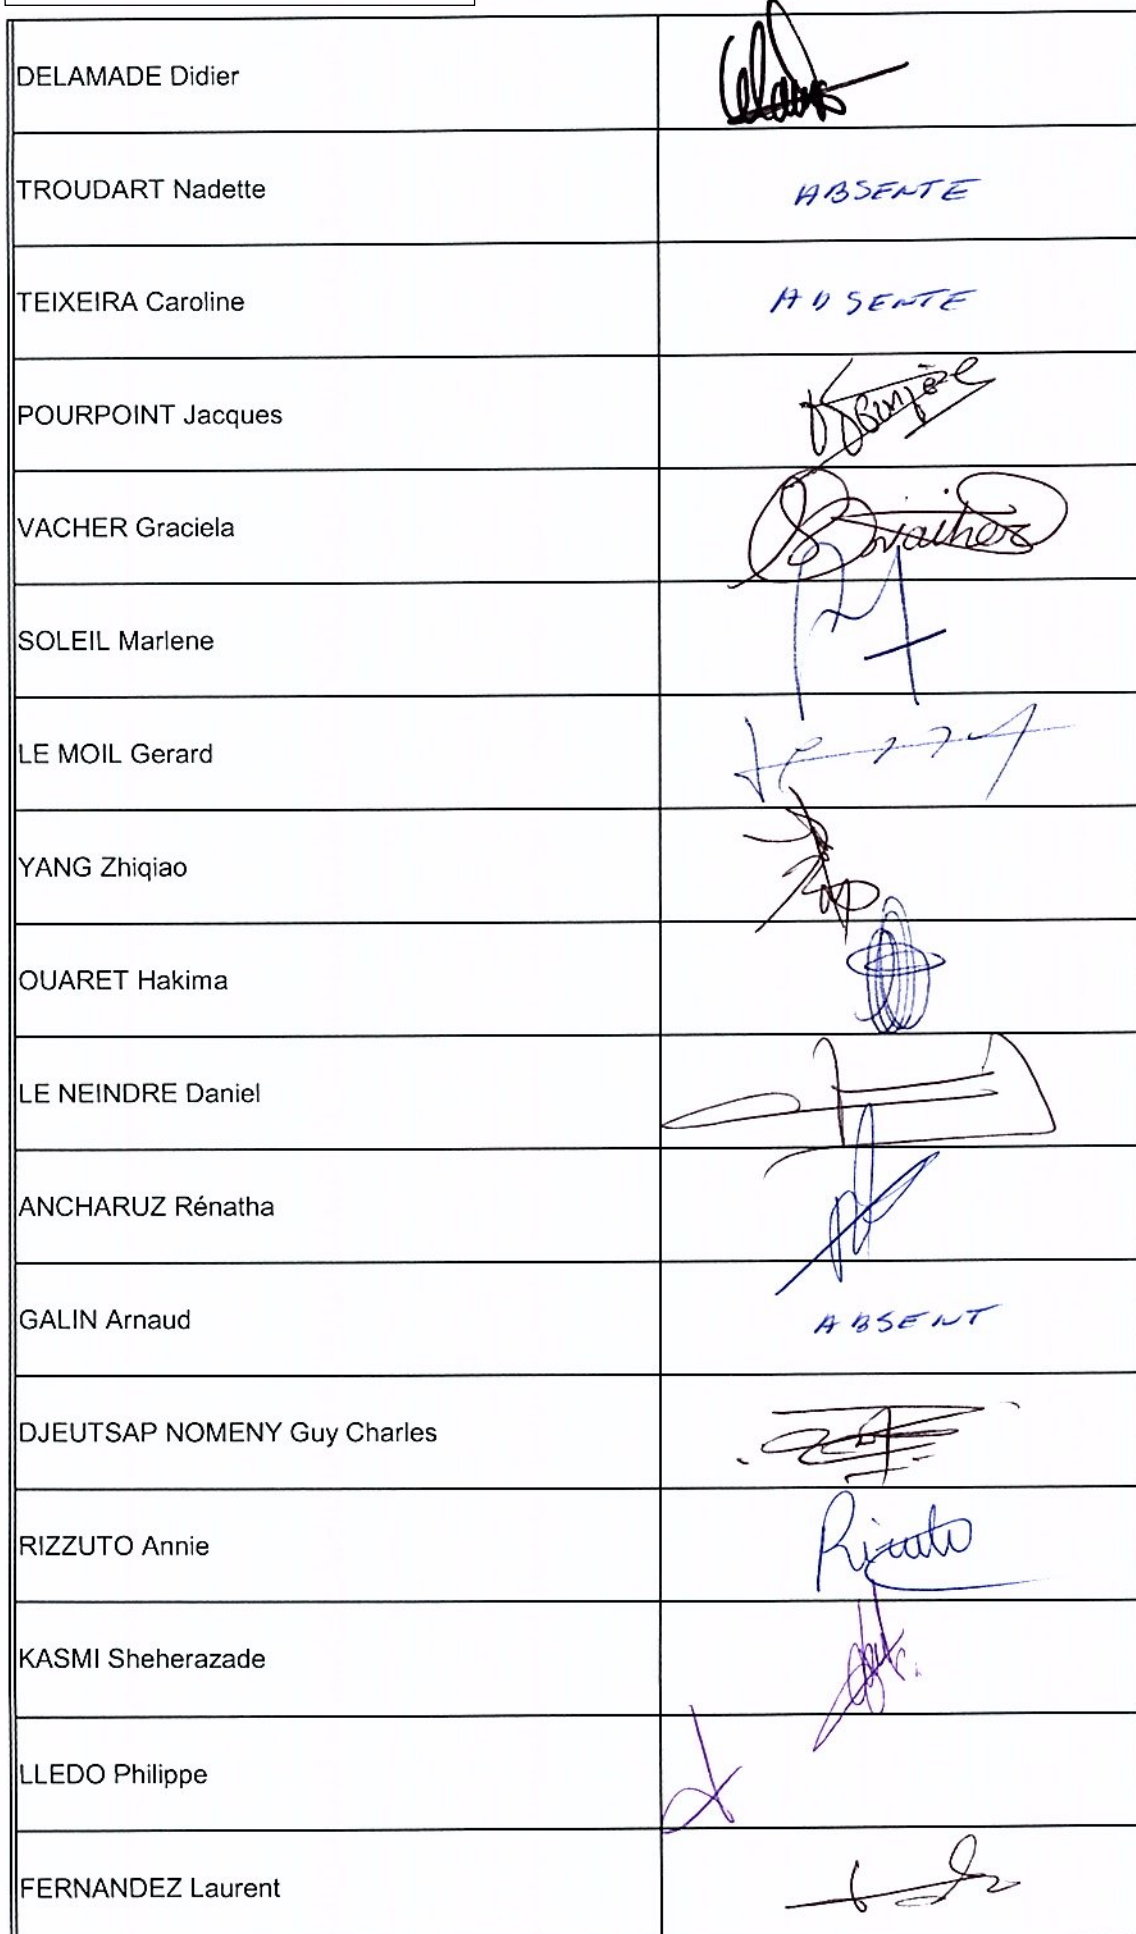 DELAMADE Didier
TROUDART Nadette ABSENTE
TEIXEIRA Caroline ABSENTE
POURPOINT Jacques
VACHER Graciela
SOLEIL Marlene
LE MOIL Gerard
YANG Zhiqiao
OUARET Hakima
LE NEINDRE Daniel
ANCHARUZ Rénatha
GALIN Arnaud ABSENT
DJEUTSAP NOMENY Guy Charles
RIZZUTO Annie
KASMI Sheherazade
LLEDO Philippe
FERNANDEZ Laurent